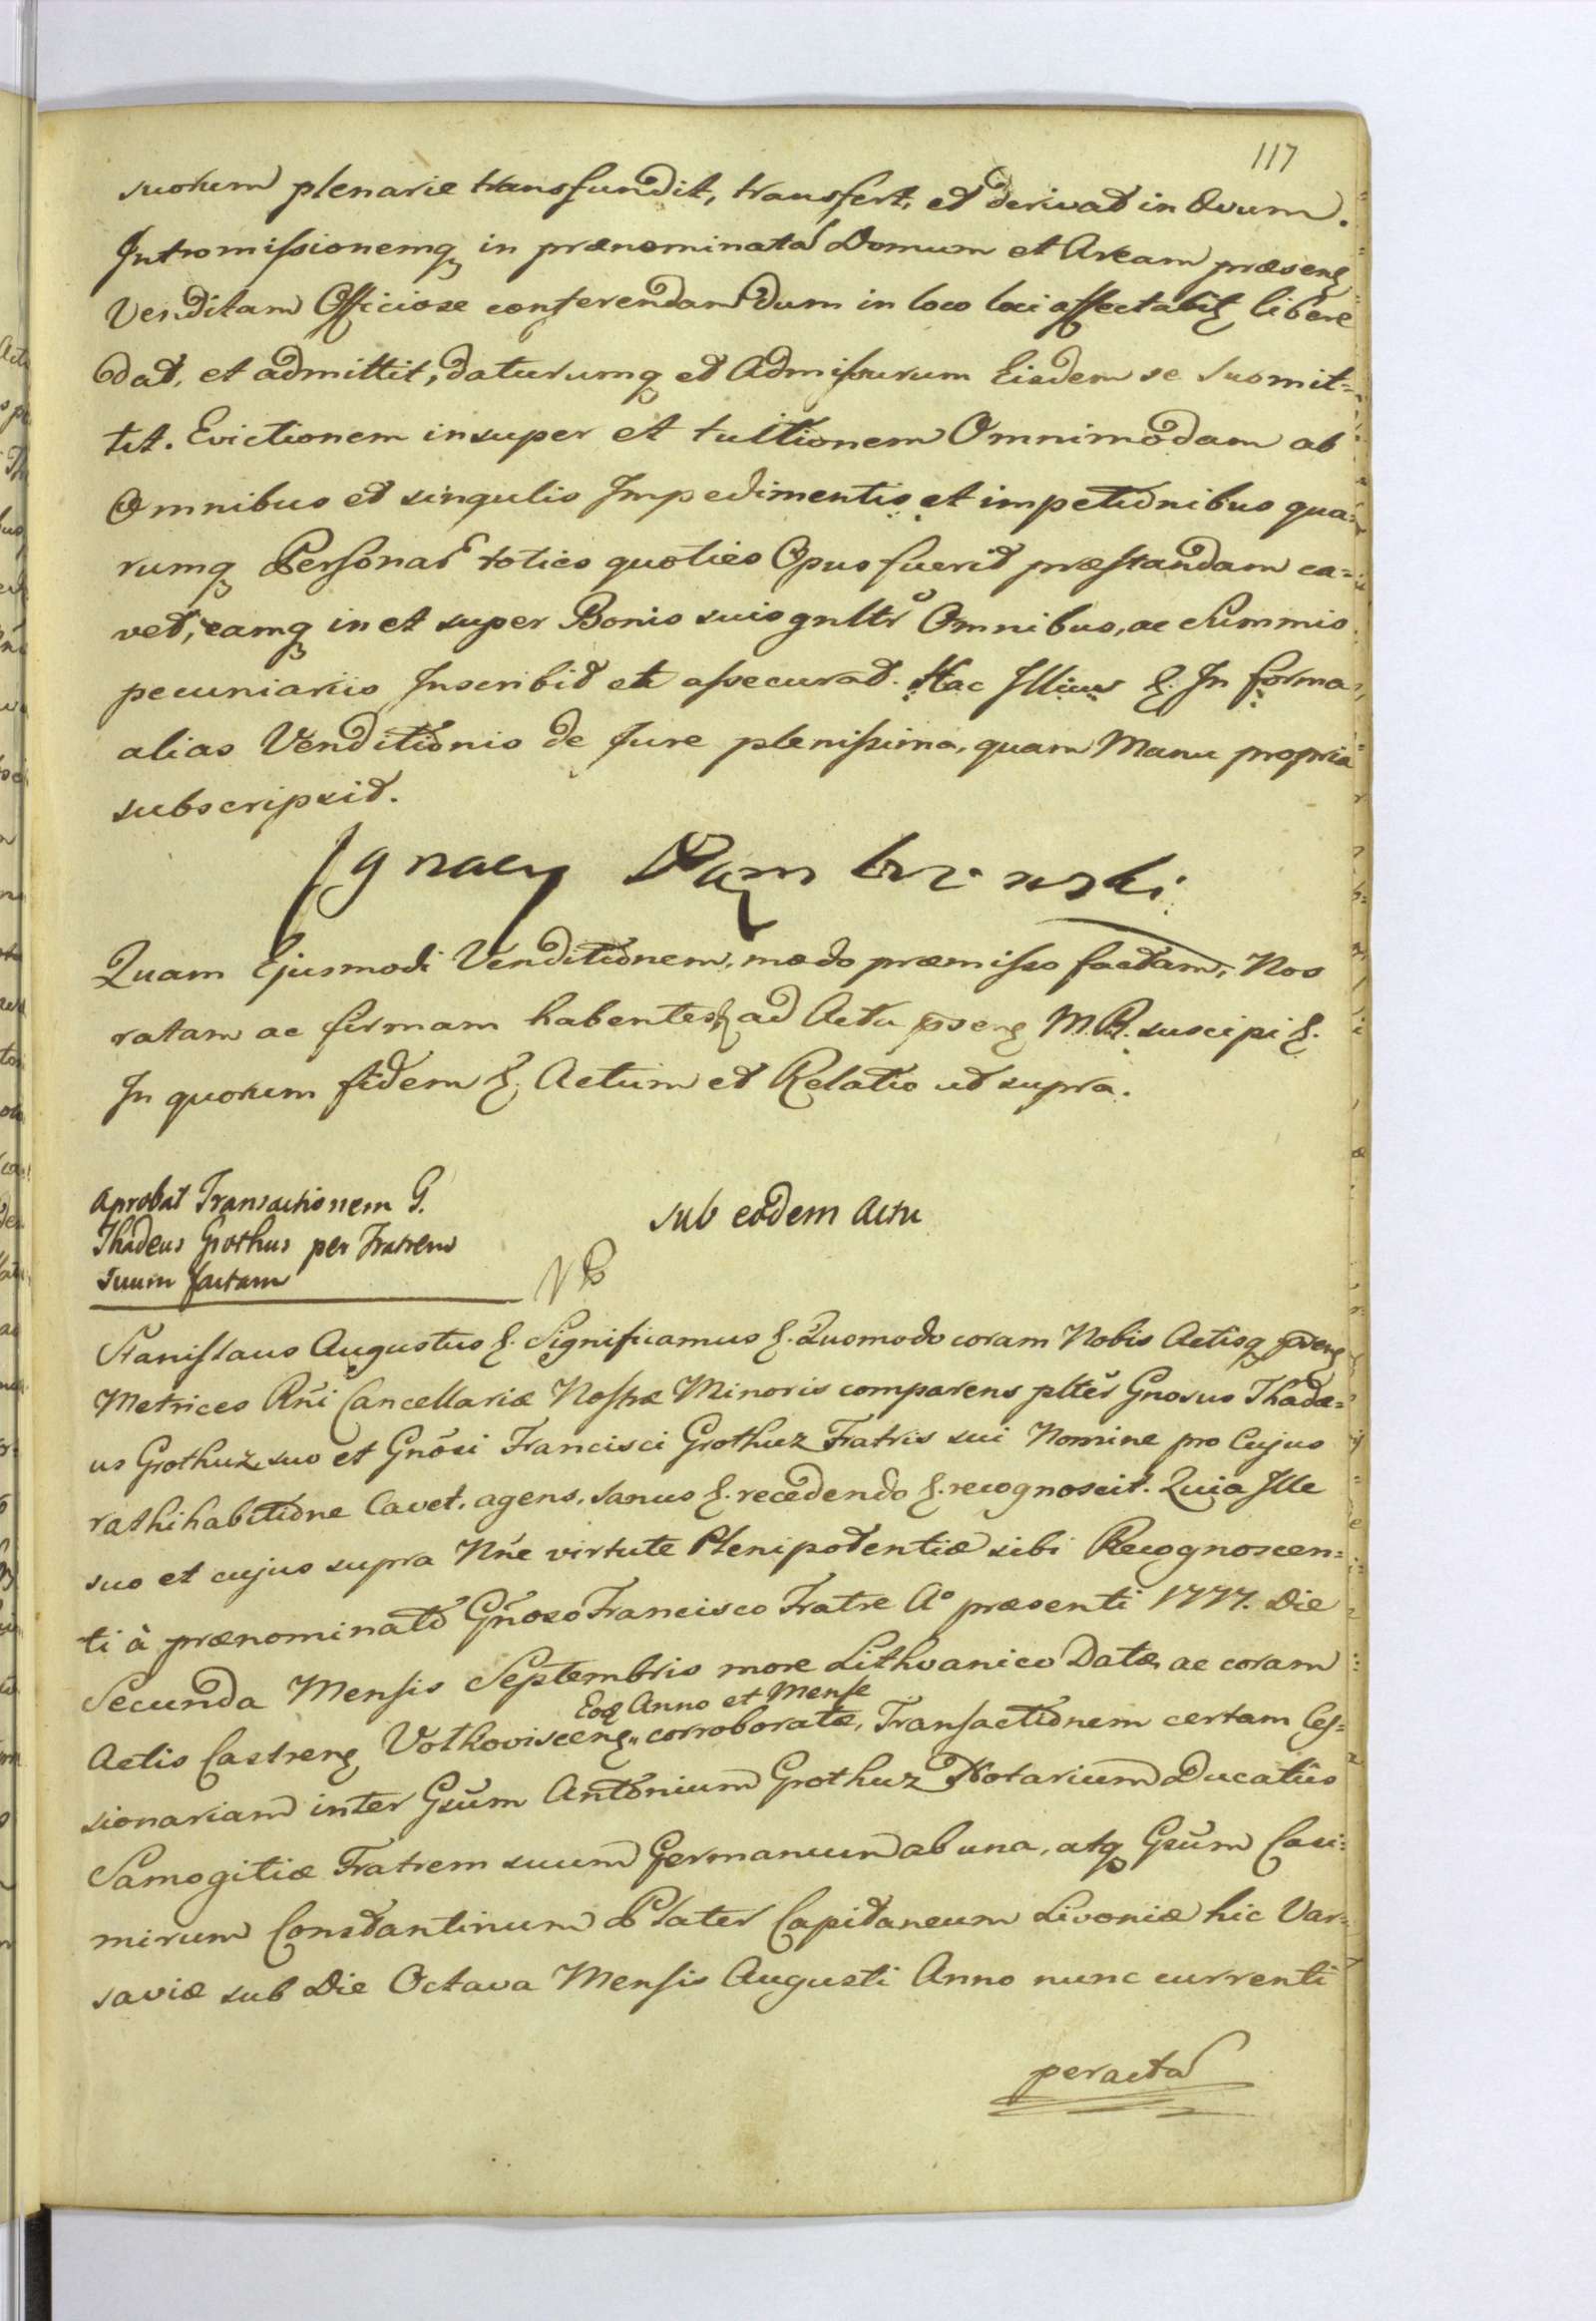 117
suorum plenarie transfundit, transfert, et derivat in Ævum.
Intromissionemq in prænominatā Domum et Aream præsenq
Venditam Officiose conferendam dum in loco loci affectabit libere
dat, et admittit, daturumq et Admissurum Eisdem se submit=
tit. Evictionem insuper et tuitionem Omnimodam ab
Omnibus et singulis Impedimentis et impetitionibus qua=
rumq Personar toties quoties Opus fuerit præstandam ca=
vet, eamq in et super Bonis suis gnltr Omnibus, ac Summis
pecuniariis Inscribit et assecurat. Hac Illius &. In forma
alias Venditionis de Jure plenissima, quam Manu propria
subscripsit.
Ignacy
Quam Ejusmodi Venditionem, modo præmisso factam, Nos
ratam ac firmam habentes, ad Acta pñsenq M. R. suscipi &.
In quorum fidem &. Actum et Relatio ut supra.
Aprobat Transactionem G.
Thadeus Grothus per Fratrem
suum factam
sub eodem Actu
Stanislaus Augustus &. Significamus &. Quomodo coram Nobis Actisq pñsenq
Metrices Rñi Cancellariæ Nostræ Minoris comparens pltěr Gnosus Thadæ=
us Grothuz, suo et Gnōsi Francisci Grothuz Fratris sui Nomine pro Cujus
rathihabitione Cavet, agens, sanus &. recedendo &. recognoscit. Quia Ille
suo et cujus supra Nñe virtute Plenipotentiæ sibi Recognoscen=
ti à prænominato Gñoso Francisco Fratre A° præsenti 1777. Die
Secunda Mensis Septembris more Lithvanico Datæ, ac coram
Eoq Anno et Mense
Actis Castrenq Volkoviscenq corroboratæ, Transactionem certam Ces=
sionariam inter Gsūm Antonium Grothuz Notarium Ducatûs
Samogitiæ Fratrem suum Germanum ab una, atq Gsūm Casi=
mirum Constantinum Plater Capitaneum Livoniæ hic Var=
saviæ sub Die Octava Mensis Augusti Anno nunc currenti
peractā